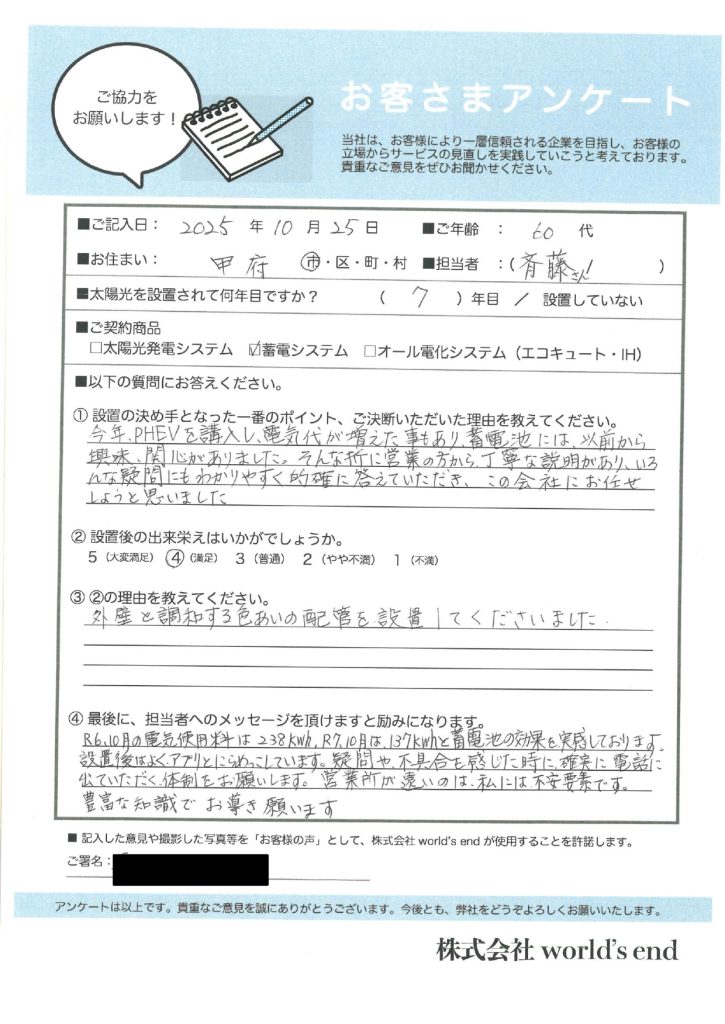 ご協力を
お願いします!
お客さまアンケート
当社は、お客様により一層信頼される企業を目指し、お客様の
立場からサービスの見直しを実践していこうと考えております。
貴重なご意見をぜひお聞かせください。
■ご記入日： 2025 年 10 月 25 日 ■ご年齢 ： 60 代
■お住まい： 甲府 市・区・町・村 ■担当者 ：(斉藤さん! )
■太陽光を設置されて何年目ですか? ( 7 ) 年目 / 設置していない
■ご契約商品
□太陽光発電システム ☑蓄電システム □オール電化システム(エコキュート・IH)
■以下の質問にお答えください。
① 設置の決め手となった一番のポイント、ご決断いただいた理由を教えてください。
今年、PHEVを購入し、電気代が増えた事もあり、蓄電池には、以前から
興味、関心がありました。そんな折に営業の方から、丁寧な説明があり、いろ
んな疑問にもわかりやすく的確に答えていただき、この会社にお任せ
しようと思いました
② 設置後の出来栄えはいかがでしょうか。
5(大変満足) ④(満足) 3(普通) 2(やや不満) 1(不満)
③ ②の理由を教えてください。
外壁と調和する色あいの配管を設置してくださいました.
④ 最後に、担当者へのメッセージを頂けますと励みになります。
R6,10月の電気使用料は238kwh,R7,10月は,137kwhと蓄電池の効果を実感しております。
設置後はよくアプリとにらめっこしています。疑問や、不具合を感じた時に、確実に電話に
出ていただく、体制をお願いします。営業所が遠いのは、私には不安要素です。
豊富な知識でお導き願います
■ 記入した意見や撮影した写真等を「お客様の声」として、株式会社 world's end が使用することを許諾します。
ご署名：
アンケートは以上です。貴重なご意見を誠にありがとうございます。今後とも、弊社をどうぞよろしくお願いいたします。
株式会社 world's end